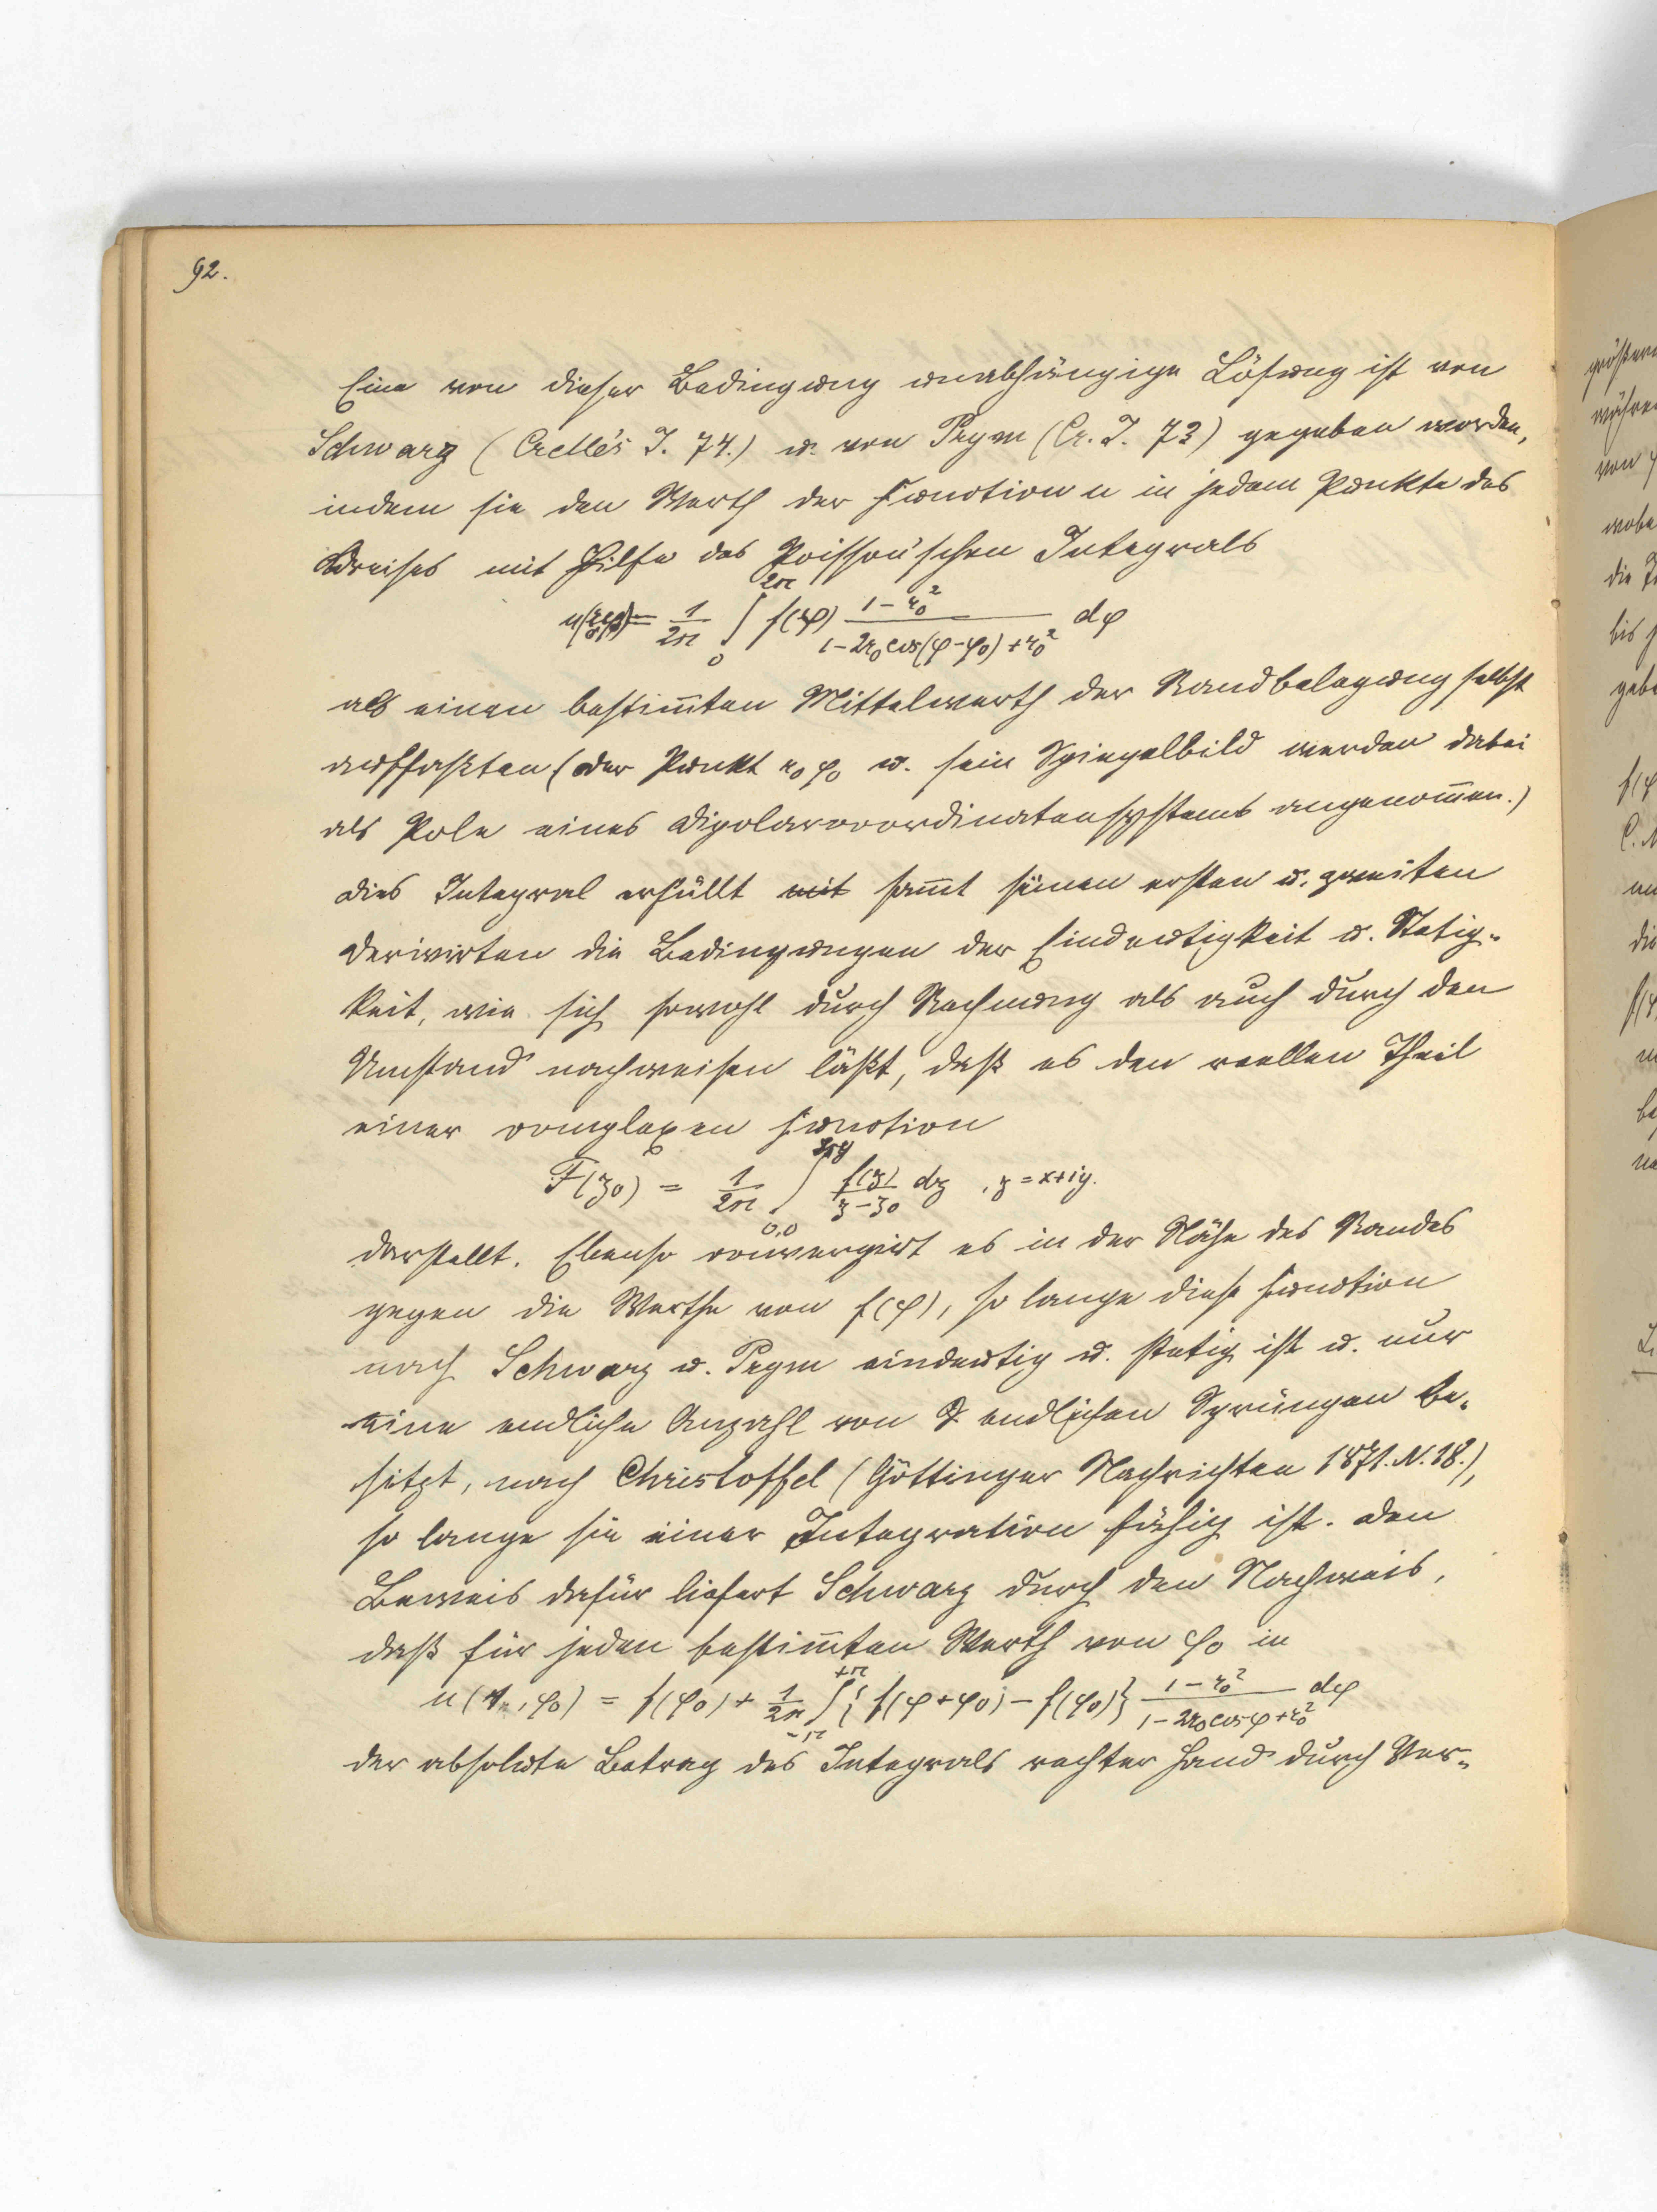 92.
Eine von dieser Bedingung unabhängige Lösung ist von
Schwarz (Crelle's J. 74.) u. von Prym (Cr. J. 73) gegeben worden,
indem sie den Werth der Function u in jedem Punkte des
Kreises mit Hilfe des Poisson'schen Integrals
u(r₀φ₀) = 1/2π ∫₀^2π f(φ) (1 - r₀²)/(1 - 2r₀ cos(φ - φ₀) + r₀²) dφ
als einen bestim̅ten Mittelwerth der Randbelegung selbst
auffaßten (der Punkt r₀ φ₀ u. sein Spiegelbild werden dabei
als Pole eines Dipolarcoordinatensystems angenom̅en.)
Dies Integral erfüllt mit sam̅t seinen ersten u. zweiten
Derivirten die Bedingungen der Eindeutigkeit u. Stetig-
keit, wie sich sowohl durch Rechnung als auch durch den
Umstand nachweisen läßt, daß es den reellen Theil
einer complexen Function
F(z₀) = 1/2π ∫ f(z)/(z - z₀) dz , z = x+iy.
0,0
darstellt. Ebenso convergirt es in der Nähe des Randes
gegen die Werthe von f(φ), so lange diese Function
nach Schwarz u. Prym eindeutig u. stetig ist u. nur
eine endliche Anzahl von endlichen Sprüngen be-
sitzt, nach Christoffel (Göttinger Nachrichten 1871. N. 18.),
so lange sie einer Integration fähig ist. Den
Beweis dafür liefert Schwarz durch den Nachweis,
daß für jeden bestim̅ten Werth von φ₀ in
u(r₀, φ₀) = f(φ₀) + 1/2π ∫₋π^+π {f(φ + φ₀) - f(φ₀)} (1 - r₀²)/(1 - 2r₀ cos φ + r₀²) dφ
der absolute Betrag des Integrals rechter Hand durch Ver-